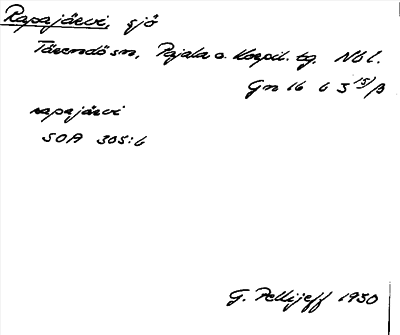 Rapajärvi, sjö
Tärendö sn, Pajala o. Korpil. tg. Nb l.
Gn 16 6 3 15/B
rapajärvi
SOA 305:6
G. Pellijeff 1950